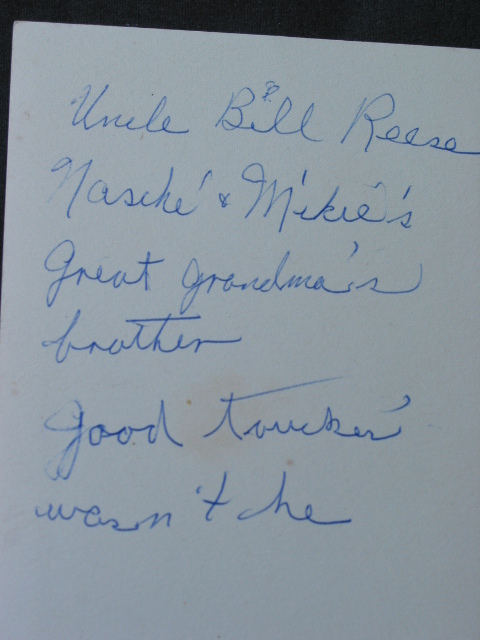 Uncle Bill Reese
& Mikie's
Great grandma's
brother
Good
wasn't he